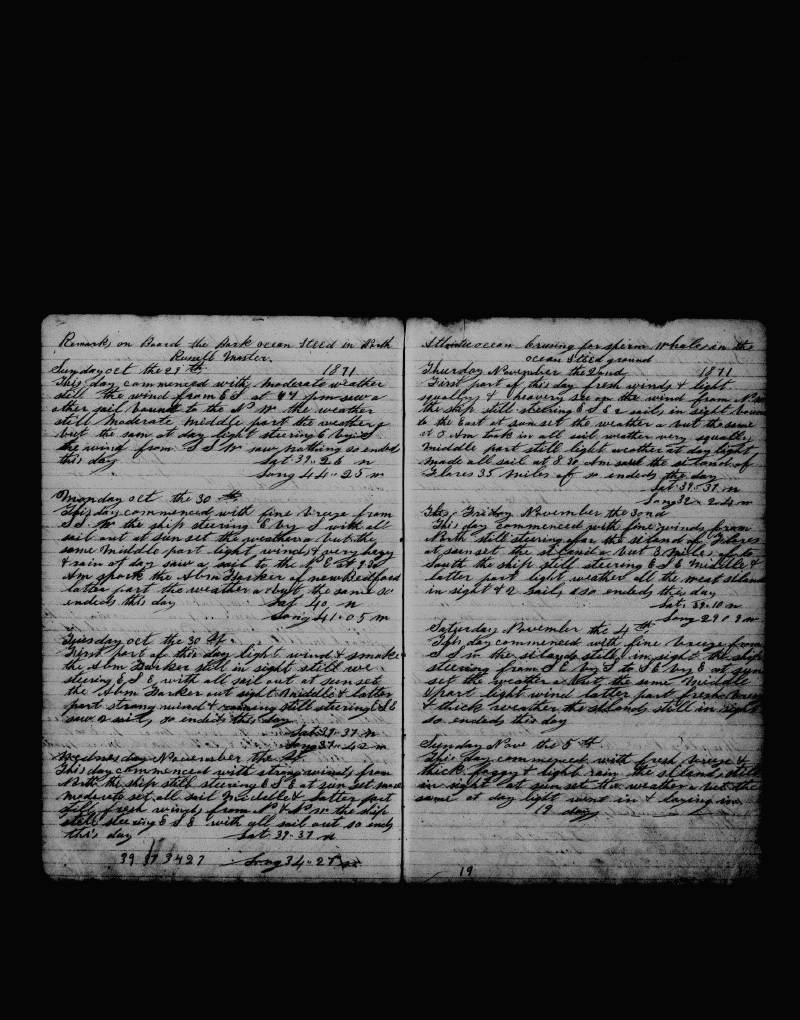 Remarks on Board the Bark ocean Steed in North
Russell Master.
Sunday oct the 29 th 1871
This day commenced with moderate weather
still the wind from E S at 4 pm saw a
other sail bound to the S W the weather
still moderate middle part the weather
but the sam at day light steering E by S
the wind from S S W saw nothing so ended
this day Lat 39-26 n
Long 44-25 w
Monday oct the 30 th
This day commenced with fine breze from
S S W the ship steering E by S with all
sail out at sun set the weather a but the
same middle part light winds & very hazy
& rain at day saw a sail to the
Am spock the Abm Barker of new Bedford
latter part the weather a but the same so
endeds this day Lat 40 n
Long 41-05 w
Tuesday oct the 30
First part of this day light wind & smoke
the Abm Barker still in sight still we
steering E S E with all sail out at sunset
the Abm Barker out sight middle & latter
part strong wind & raining still steering E S E
saw 2 sails so endeds this day
Lat 39-37 n
Long 37-42 w
Wednesday November the
This day commenced with strong winds from
North the ship still steering E S E at sun set more
moderate set all sail middle & latter part
still fresh winds from N & N W the ship
still steering E S E with all sail out so ends
this day Lat 39-37 n
Long 34-27 w
Atlantic ocean Crusing for sperm whales in the
ocean Steed ground
Thursday November the 2nd 1871
First part of this day fresh winds & light
squalls & heavery sea on the wind from
the ship still steering E S E 2 sails in sight bound
to the East at sun set the weather a but the same
at Am took in all sail weather very squally
middle part still light weather at day light
made all sail at 8.30 Am saw the island of
Flores 35 miles of so endeds the day
Lat 39-37 n
Long 32-24 w
Friday November the 3ond
This day commenced with fine winds from
North still steering for the island of Flores
at sun set the island a but 8 miles of to
South the ship still steering E S E middle &
latter part light weather all the west island
in sight & 2 sails so endeds the day
Lat 39-10 n
Long 29 w
Saturday November the 4 th
This day commenced with fine breeze from
S S W the islands still in sight the ship
steering from S E by S to S E by E at sun
set the weather a but the same middle
part light wind latter part fresh breeze
& thick weather the islands still in sight
so ended this day
Synday Nove the 5 th
This day commenced with fresh breeze &
thick foggy & light rain the islands still
in sight at sun set the weather a but the
same at day light went in & laying in
19 day
19